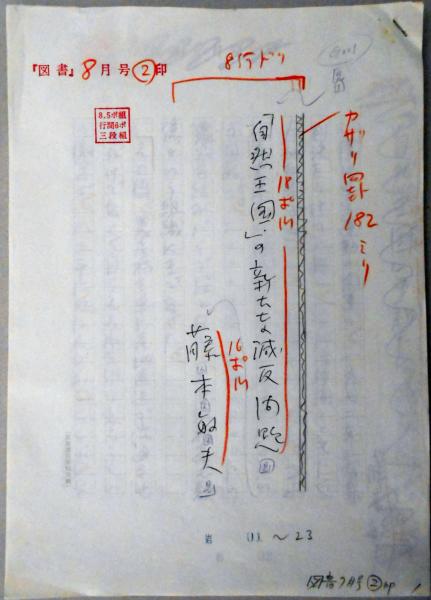 『図書』8月号②印
8行ドリ
8.5ポ組
行間6ポ
三段組
カザリ罫182ミリ
「自然王国」の新たな減反問題
18ポ
藤本敏夫
16ポ
岩
～23
図書7月号②